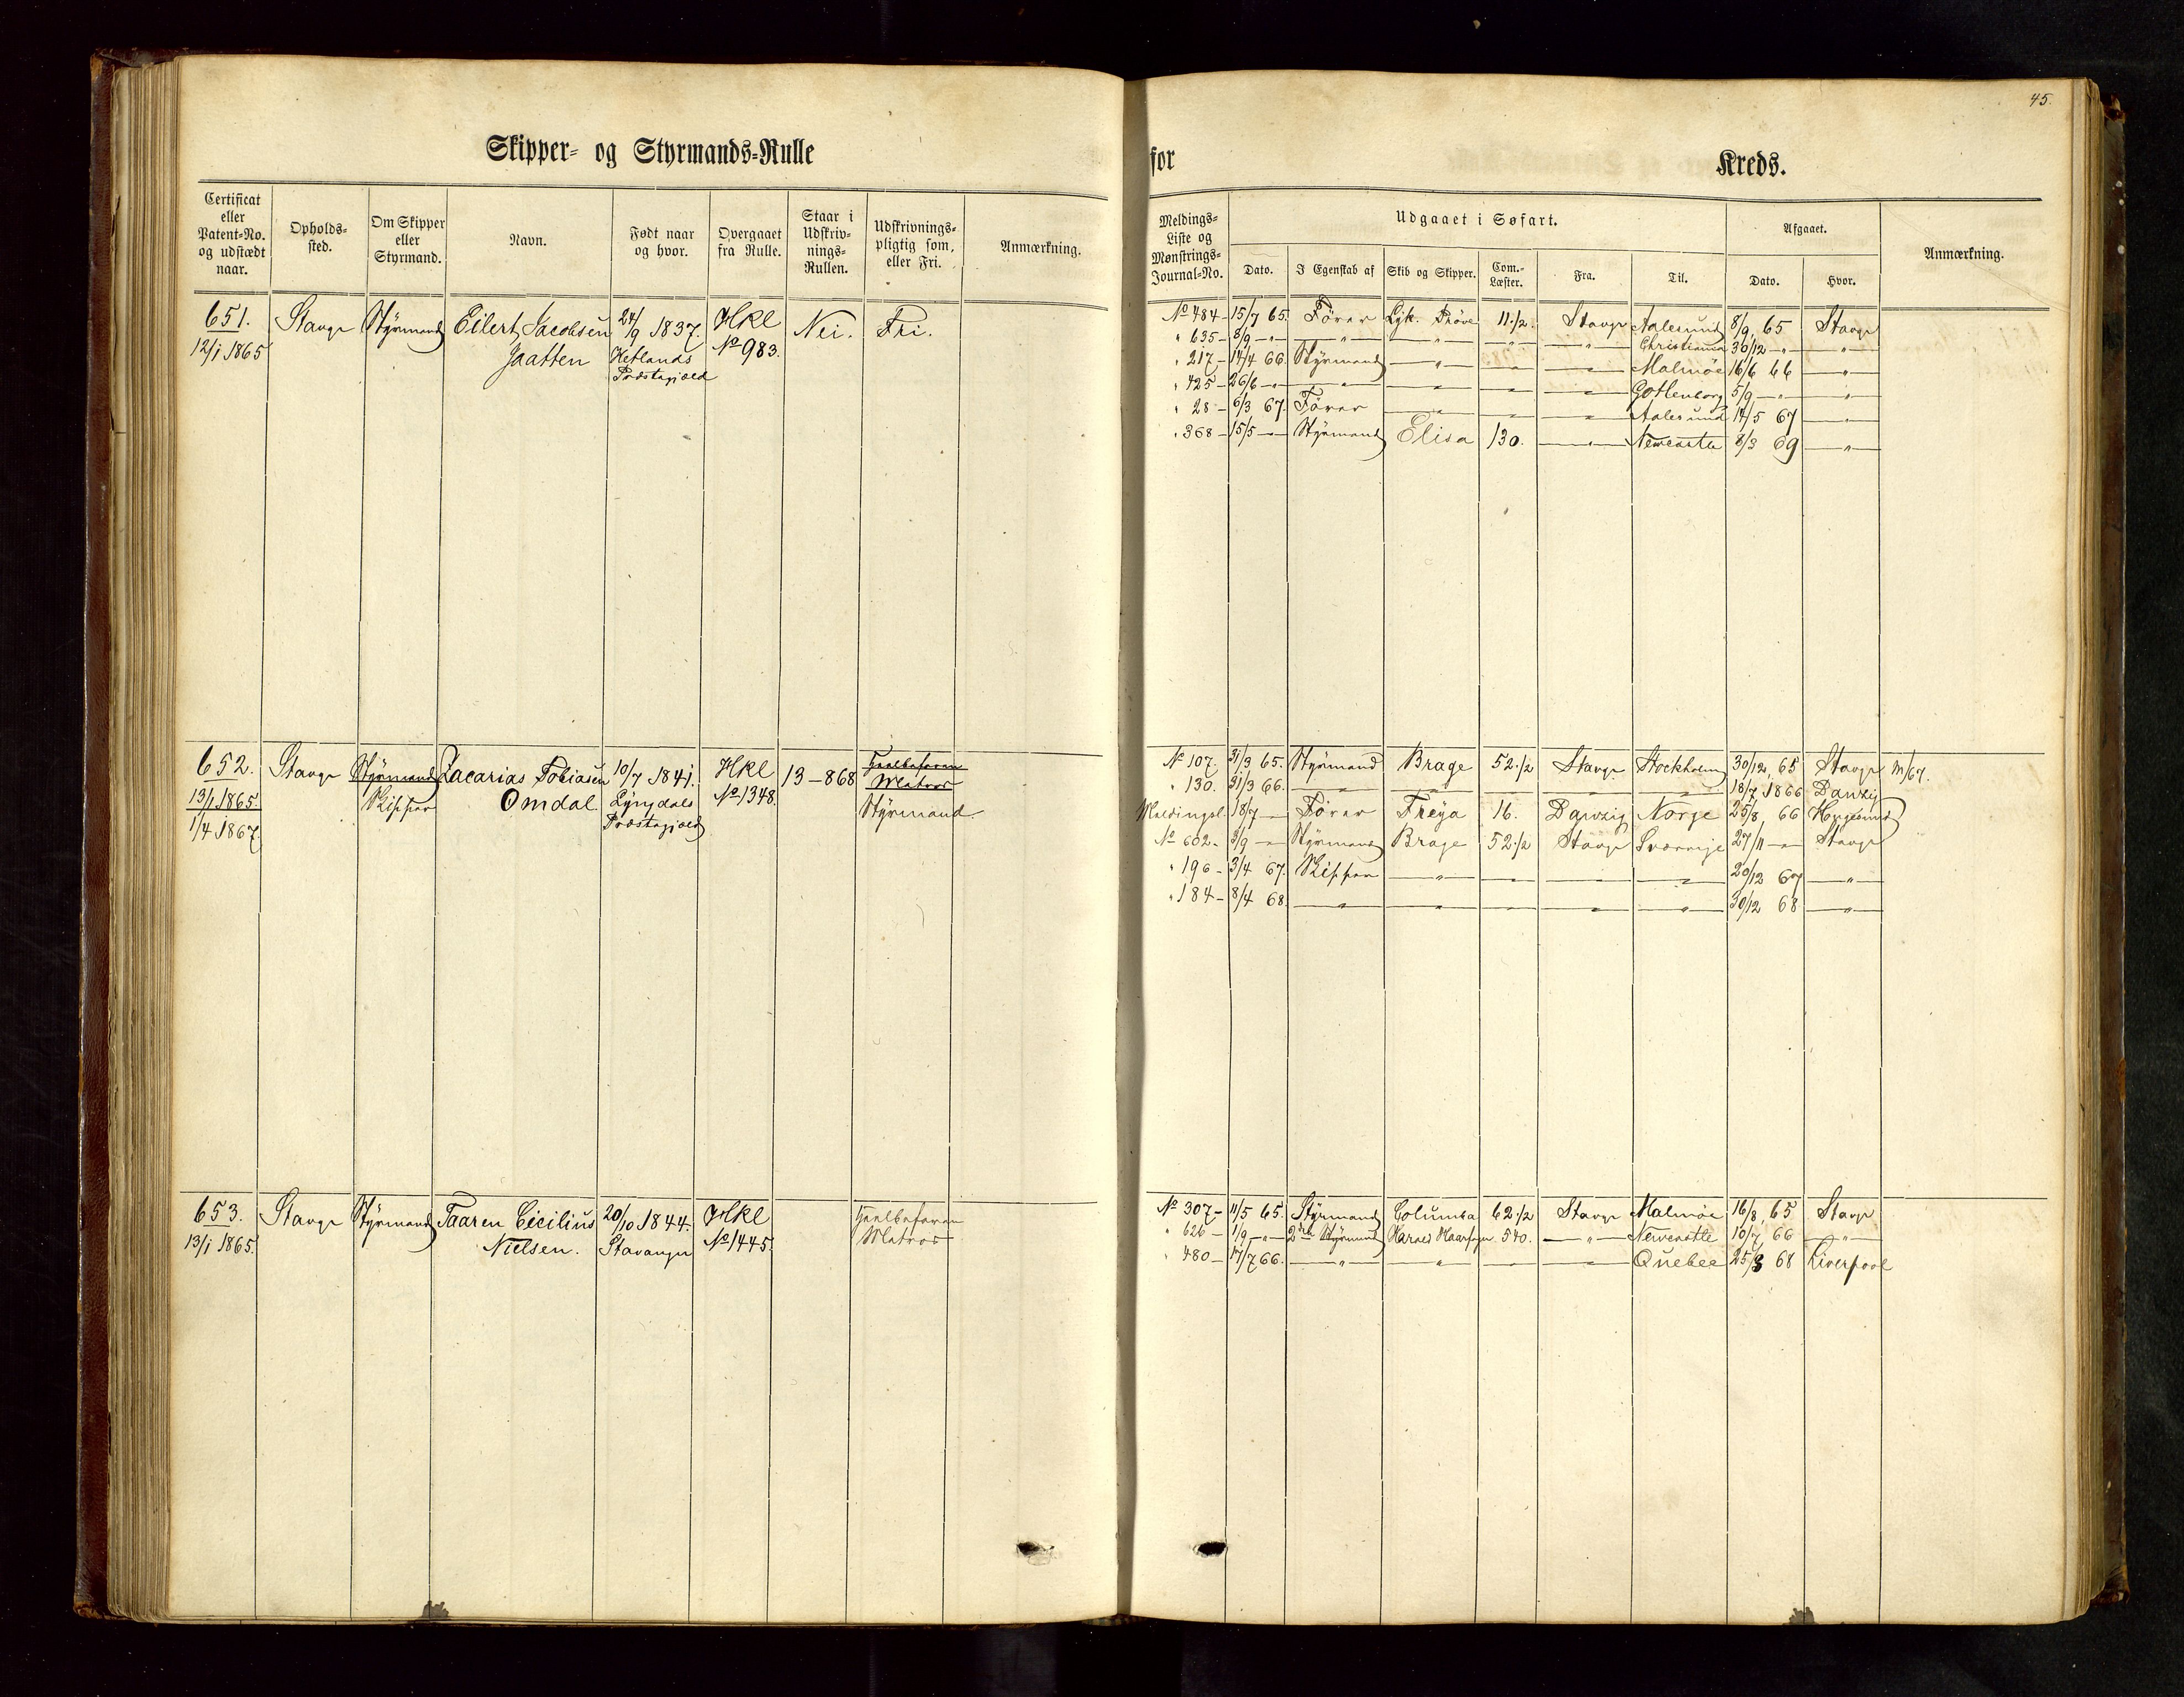 45.
Skipper- og Styrmands-Rulle
for
Kreds.
Certificat eller Patent-No. og udstædt naar.
Opholdssted.
Om Skipper eller Styrmand.
Navn.
Født naar og hvor.
Overgaaet fra Rulle.
Staar i Udskrivnings-Rullen.
Udskrivningspligtig som, eller Fri.
Anmærkning.
Meldings-Liste og Mønstrings-Journal-No.
Udgaaet i Søfart.
Dato.
I Egenskab af
Skib og Skipper.
Com.-Læster.
Fra.
Til.
Afgaaet.
Dato.
Hvor.
Anmærkning.
651. Stavgr Styrmand Eilert Jacobsen 24/9 1837. Hkl Nei. Fri.
12/1 1865 Jaatten Hetlands No 983.
Præstegjæld
No 484 - 15/7 65. Förer 11 1/2 Stavgr Aalesund 8/9, 65 Stavgr
" 635 - 8/9 - " - " - " - " - " Christiania 30/12 - " - "
" 217 - 14/4 66 Styrmand - " - " - " Malmöe 16/6 66 - "
" 425 - 26/6 - " - " - " - " - " Gothenborg 5/9 - " - "
" 28 - 6/3 67. Förer - " - " - " Aalesund 14/5 67 - "
" 368 - 15/5 - " Styrmand Elisa 130. - " Newcastle 8/3 69 - "
652. Stavgr Styrmand Zacarias Tobiasen 10/7 1841. Hkl 13-868 Halvbefaren
13/1 1865. Skipper Omdal Lyngdals No 1348. Matros
1/4 1867 Præstegjæld Styrmand.
No 107. 31/3 65. Styrmand Brage 52 1/2 Stavgr Stockholm 30/12, 65 Stavgr M/67.
" 130. 31/3 66. - " - " - " - " - " 18/7 1866 Danzig
Meldingsl. 18/7 - Förer Freya 16. Danzig Norge 25/8, 66 Haugesund
No 602 - 3/9 - Styrmand Brage 52 1/2 Stavgr Sverrige 27/11 - " Stavgr
" 196 - 3/4 67. Skipper - " - " - " - " 20/12 67 - "
" 184 - 8/4 68. - " - " - " - " - " 30/12 68 - "
653. Stavgr Styrmand Taaren Cicilius 20/10 1844. Hkl Halvbefaren
13/1 1865. Nielsen. Stavanger No 1445. Matros
No 307 - 11/5 65. Styrmand Columba 62 1/2 Stavgr Malmöe 16/8, 65 Stavgr
" 626 - 1/9 - " - 2den Styrmand Harald Haarfager 540. - " Newcastle 10/7 66 - "
" 480 - 17/7 66. - " - " - " - " Quebec 25/3 68 Liverpool